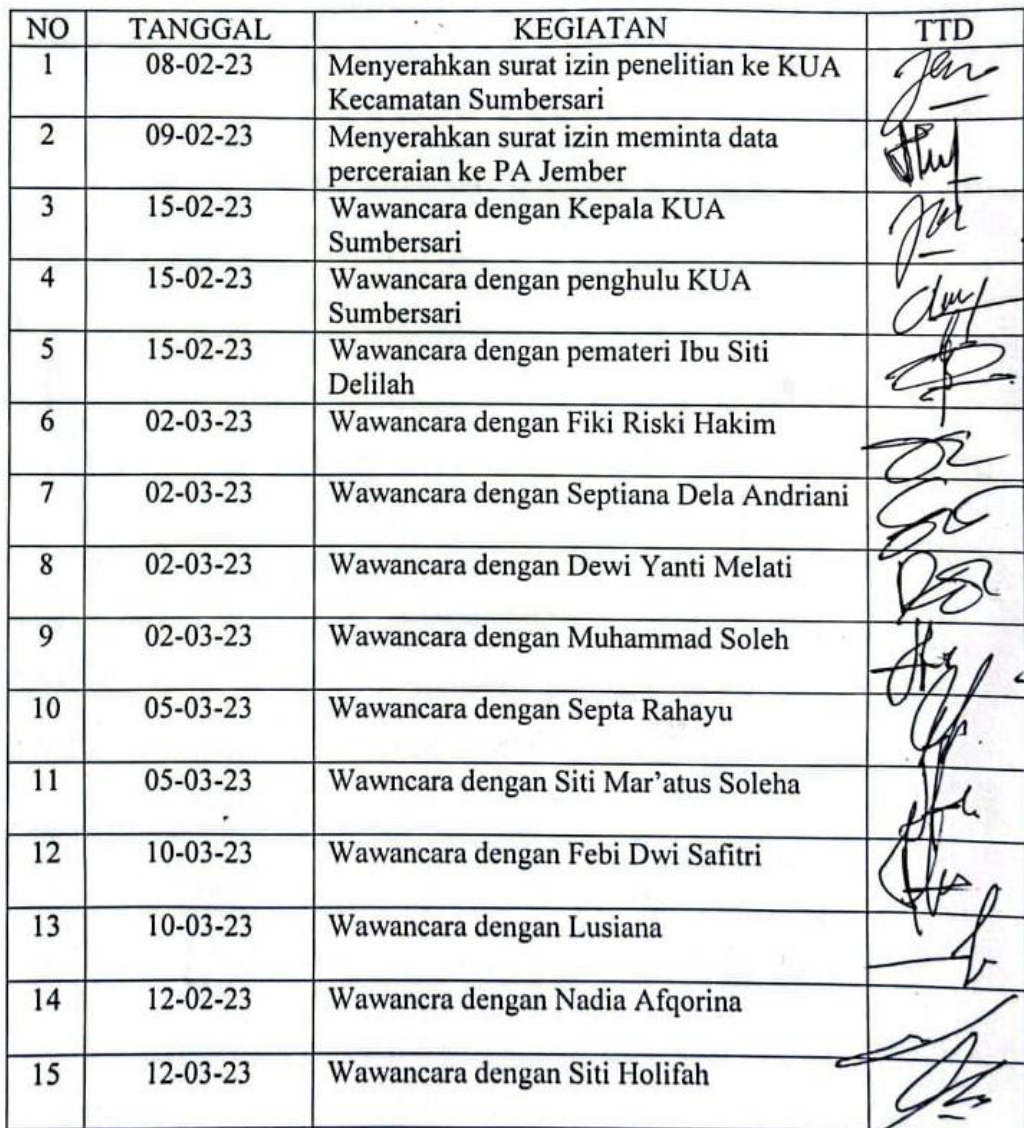 NO TANGGAL KEGIATAN TTD
1 08-02-23 Menyerahkan surat izin penelitian ke KUA
Kecamatan Sumbersari
2 09-02-23 Menyerahkan surat izin meminta data
perceraian ke PA Jember
3 15-02-23 Wawancara dengan Kepala KUA
Sumbersari
4 15-02-23 Wawancara dengan penghulu KUA
Sumbersari
5 15-02-23 Wawancara dengan pemateri Ibu Siti
Delilah
6 02-03-23 Wawancara dengan Fiki Riski Hakim
7 02-03-23 Wawancara dengan Septiana Dela Andriani
8 02-03-23 Wawancara dengan Dewi Yanti Melati
9 02-03-23 Wawancara dengan Muhammad Soleh
10 05-03-23 Wawancara dengan Septa Rahayu
11 05-03-23 Wawncara dengan Siti Mar’atus Soleha
12 10-03-23 Wawancara dengan Febi Dwi Safitri
13 10-03-23 Wawancara dengan Lusiana
14 12-02-23 Wawancra dengan Nadia Afqorina
15 12-03-23 Wawancara dengan Siti Holifah